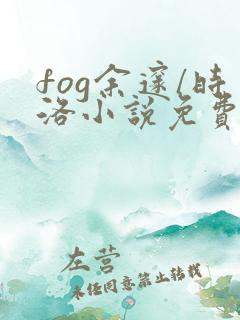 fog余邃/时
洛小说免费
左营
未经同意禁止转载